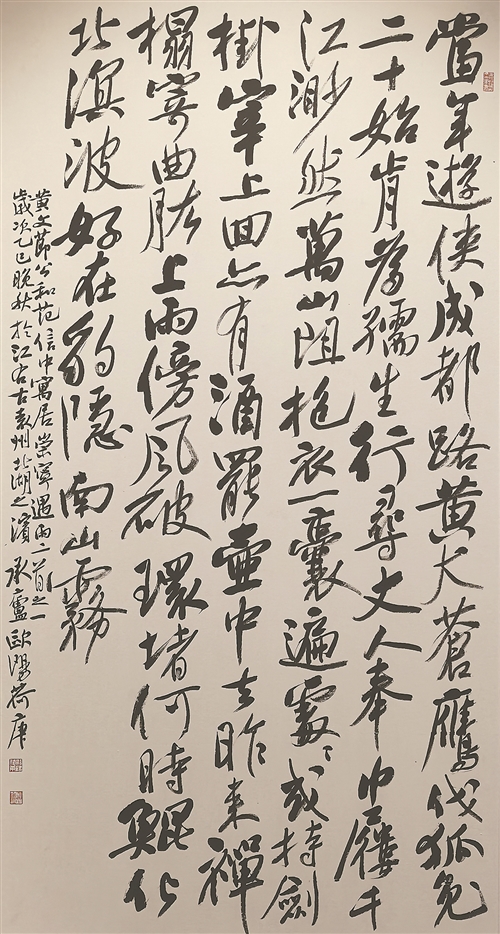 當年遊俠成都路黃犬蒼鷹伐狐兔
二十始肯為孺生行尋丈人奉巾屨千
江渺然萬山阻抱衣一囊遍處々或持劍
掛宰上回亦有酒罷壺中去昨來禪
榻寄曲肱上雨傍風破環堵何時鯤化
北溟波好在豹隱南山霧
黃文節公和范信中寓居崇寧遇雨二首之一
歲次乙巳晚秋於江右古袁州北湖之濱承廬歐陽荷庚